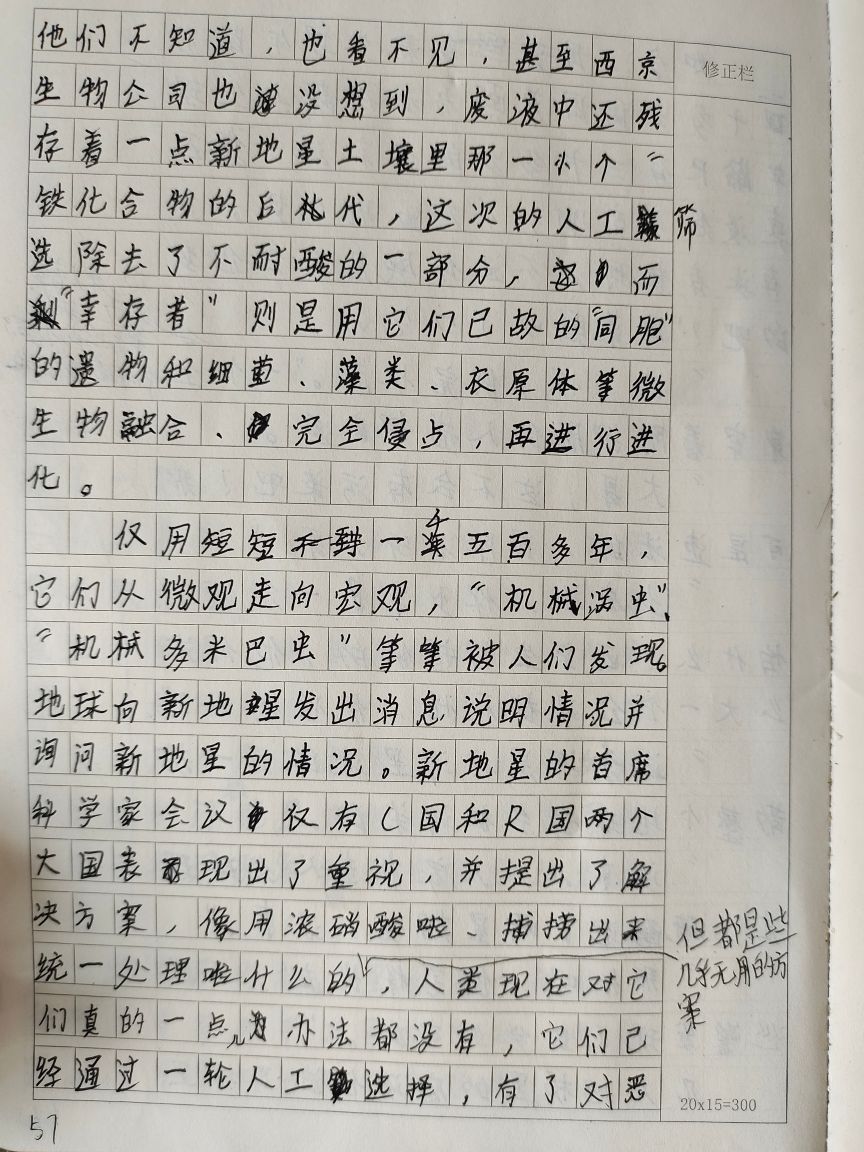 他们不知道，也看不见，甚至西京
修正栏
生物公司也没想到，废液中还残
存着一点新地星土壤里那一小个“
铁化合物的后代，这次的人工筛
选除去了不耐酸的一部分，而
“幸存者”则是用它们已故的“同胞”
的遗物和细菌、藻类、衣原体等微
生物融合、完全侵占，再进行进
化。
仅用短短一千五百多年，
它们从微观走向宏观，“机械涡虫”、
“机械多米巴虫”等等被人们发现。
地球向新地星发出消息说明情况并
询问新地星的情况。新地星的首席
科学家会议仅有C国和R国两个
大国表现出了重视，并提出了解
决方案，像用浓硝酸啦、捕捞出来
统一处理啦什么的，人类现在对它
但都是些几乎无用的方案
们真的一点儿办法都没有，它们已
经通过一轮人工选择，有了对恶
20x15=300
57